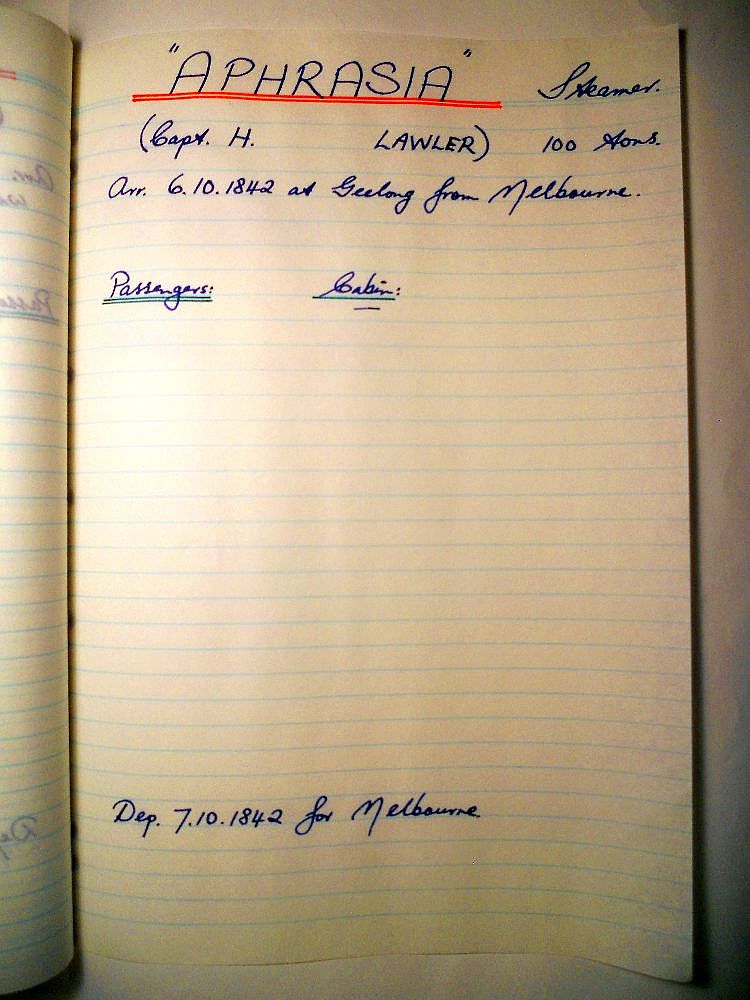 "APHRASIA" Steamer.
(Capt. H. LAWLER) 100 tons.
Arr. 6.10.1842 at Geelong from Melbourne.
Passengers: Cabin:
—
Dep. 7.10.1842 for Melbourne.